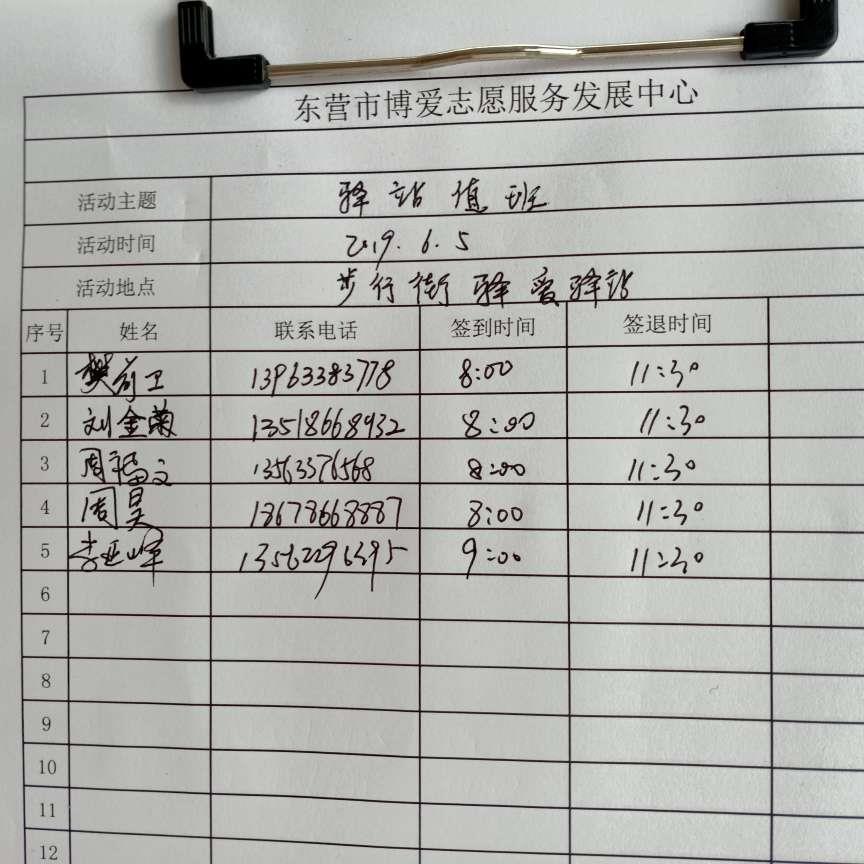 东营市博爱志愿服务发展中心
活动主题 驿站值班
活动时间 2019.6.5
活动地点 步行街驿爱驿站
序号 姓名 联系电话 签到时间 签退时间
1 樊前卫 13963383778 8:00 11:30
2 刘金菊 13518668932 8:00 11:30
3 周福文 13563376568 8:00 11:30
4 周昊 18678668887 8:00 11:30
5 李亚峰 13562296395 9:00 11:30
6
7
8
9
10
11
12